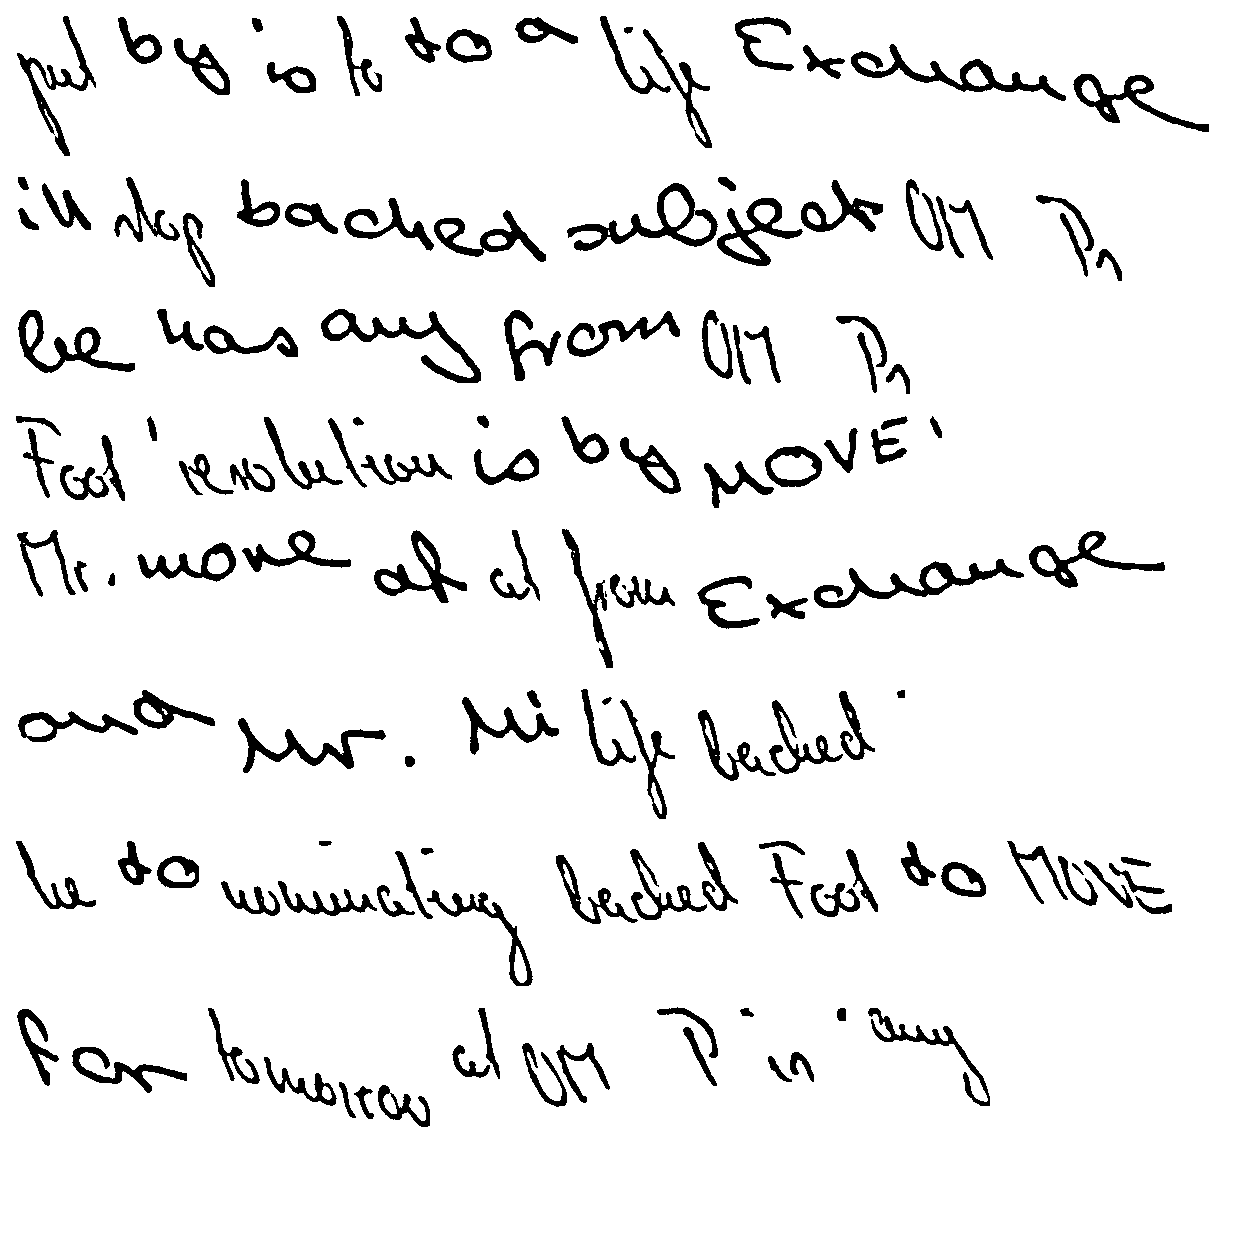 put by is to to a life Exchange
in stop backed subject OM Pn
be has any from OM Pn
Foot 'resolution is by MOVE'
Mr. move at at from Exchange
and Mr. Mi life backed .
be to nominating backed Foot to MOVE
for tomorrow at OM P in . any